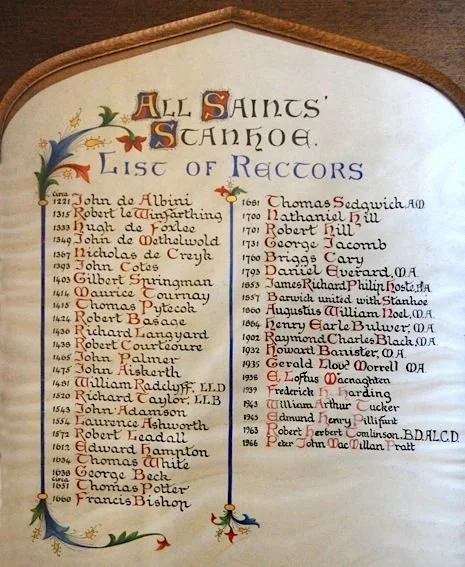 All Saints'
Stanhoe.
List of Rectors
circa
1221 John de Albini
1315 Robert le Wingfarthing
1333 Hugh de Foxlee
1349 John de Methelwold
1367 Nicholas de Creyk
1393 John Cotes
1403 Gilbert Springman
1414 Maurice Tournay
1415 Thomas Pytecok
1424 Robert Basage
1436 Richard Langyard
1438 Robert Courteoure
1465 John Palmer
1478 John Aiskerth
1491 William Radclyff, LL.D
1520 Richard Taylor, LL.B
1543 John Adamson
1554 Laurence Ashworth
1572 Robert Leadall
1612 Edward Hampton
1634 Thomas White
1638 George Beck
circa
1651 Thomas Potter
1660 Francis Bishop
1681 Thomas Sedgwick AM
1700 Nathaniel Hill
1701 Robert Hill
1731 George Jacomb
1760 Briggs Cary
1793 Daniel Everard, M.A.
1853 James Richard Philip Hoste,
1857 Barwick united with Stanhoe
1860 Augustus William Noel, M.A.
1864 Henry Earle Bulwer, M.A.
1902 Raymond Charles Black, M.A.
1932 Howard Banister, M.A.
1935 Gerald Morrell MA
1938 E. Loftus Macnaghten
1939 Frederick H. Harding
1943 William Arthur Tucker
1945 Edmund Henry Pillifant
1963 Robert Herbert Tomlinson, B.D. A.L.C.D.
1966 Peter John MacMillan Pratt